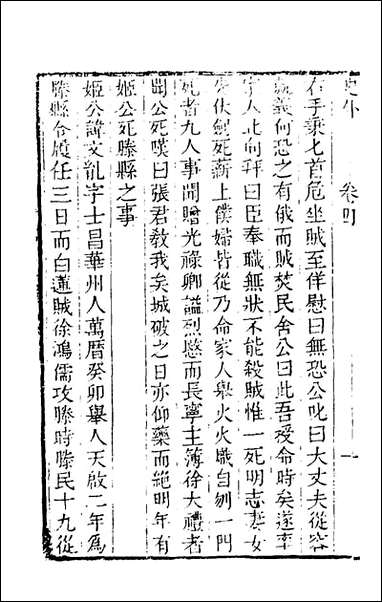 史外 卷四 一
右手秉匕首危坐賊至佯慰曰無恐公叱曰大丈夫從容
就義何恐之有俄而賊焚民舍公曰此吾授命時矣遂率
家人北向拜曰臣奉職無狀不能殺賊惟一死明志妻女
先伏劍死薪上僕婦皆從乃命家人舉火火熾自刎一門
死者九人事聞贈光祿卿謚烈愍而長寧主簿徐大禮者
聞公死嘆曰張君教我矣城破之日亦仰藥而絕明年有
姬公死滕縣之事
姬公諱文胤字士昌華州人萬曆癸卯舉人天啟二年爲
滕縣令履任三日而白蓮賊徐鴻儒攻滕時滕民十九從